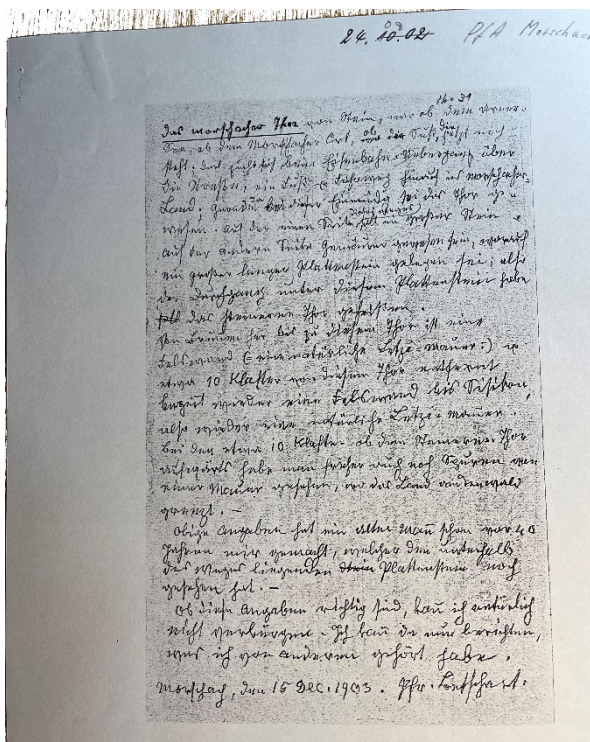 24. 10.02 PfA Morschach
das morschacher Thor von Stein, war ob dem Urner-
See, ob dem Morschacher Ort, wo die
steht; dort zieht sich beim Eisenbahn-Uebergang über
die Strasse, ein Fuß- & Fahrweg hinein ins morschacher-
Land; gerade bei dieser Einmündg sei das Thor ge-
wesen. auf der einen Seite soll ein großer Stein &
auf der andern Seite Gemäuer gewesen sein, worauf
ein großer langer Plattenstein gelegen sei; also
der Durchgang unter diesem Plattenstein habe
das steinerne Thor geheißen.
Von Brunnen her bis zu diesem Thor ist eine
Felswand (: eine natürliche Letze-Mauer:) &
etwa 10 Klafter von diesem Thor entfernt
beginnt wieder eine Felswand bis Sisikon,
also wieder eine natürliche Letze-Mauer.
Bei den etwa 10 Klafter ob dem Steinernen Thor
aufwärts habe man früher auch noch Spuren von
einer Mauer gesehen, wo das Land an den Wald
grenzt. –
Obige Angaben hat ein alter Mañ schon vor 40
Jahren mir gemacht, welcher den unterhalb
des Weges liegenden Plattenstein noch
gesehen hat. –
Ob diese Angaben richtig sind, kañ ich natürlich
nicht verbürgen. Ich kañ da nur berichten,
was ich von anderen gehört habe.
Morschach, den 15 Dec. 1903. Pfr. Betschart.